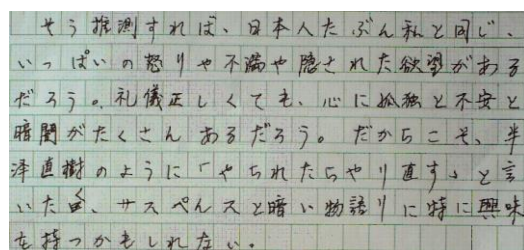 そう推測すれば、日本人たぶん私と同じ、
いっぱいの怒りや不満や隠された欲望がある
だろう。礼儀正しくても、心に孤独と不安と
暗闇がたくさんあるだろう。だからこそ、半
沢直樹のように「やられたらやり直す」と言
いた、サスペンスと暗い物語りに特に興味
を持つかもしれない。